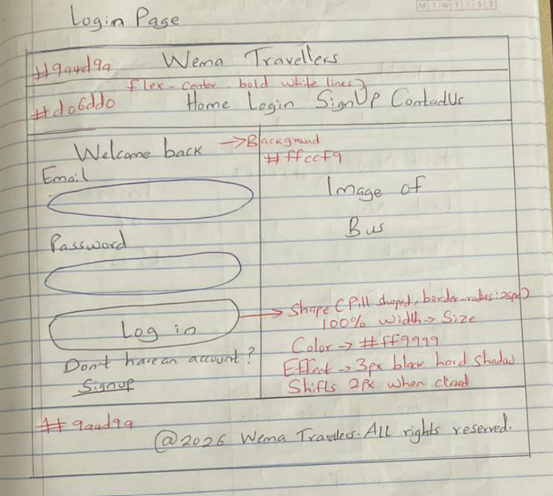 Login Page
M T W T F S S
#9a4d9a Wema Travellers
flex-center, bold white lines)
#d06dd0 Home Login SignUp ContactUs
Welcome back →Background
#ffccf9
Email
Image of
Bus
Password
Shape (Pill shaped, border-radius:25px)
100% width → Size
Log in
Color → #ff9999
Effect → 3px black hard shadow
Shifts 2px when
Don't have an account?
Signup
#9a4d9a
@2026 Wema Travellers. All rights reserved.